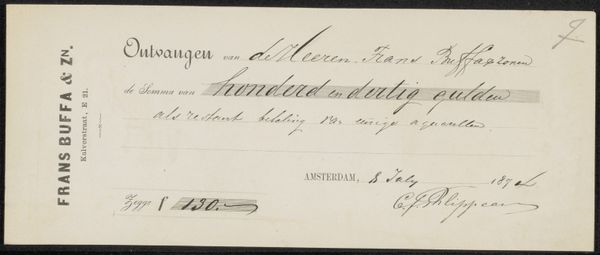 FRANS BUFFA & ZN.
Kalverstraat, E 21.
7
Ontvangen van de Heeren Frans Buffa & zonen
de Somma van honderd en dertig gulden
als restant betaling van eenige aquarellen.
AMSTERDAM, 8 July 1894
Zegge f 130.-
C. J.